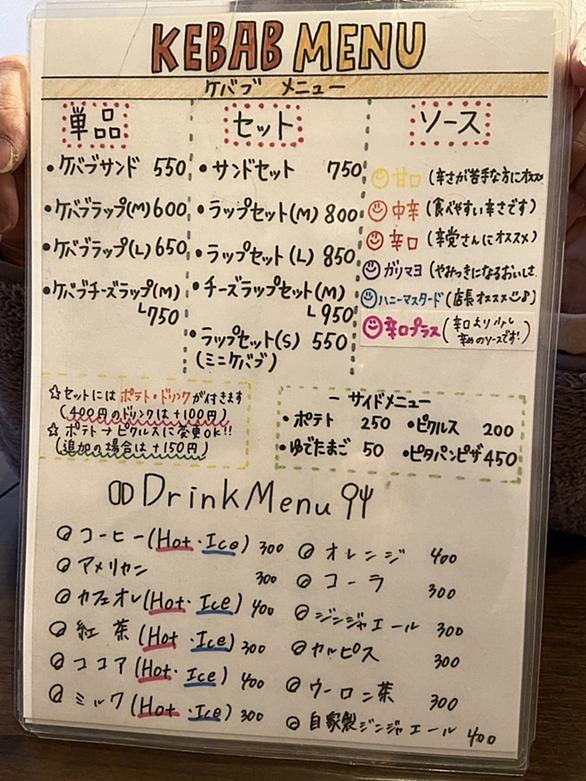 KEBAB MENU
ケバブ メニュー
単品
・ケバブサンド 550
・ケバブラップ(M) 600
・ケバブラップ(L) 650
・ケバブチーズラップ(M)
└750
セット
・サンドセット 750
・ラップセット(M) 800
・ラップセット(L) 850
・チーズラップセット(M)
└950
・ラップセット(S) 550
(ミニケバブ)
ソース
甘口 (辛さが苦手な方にオススメ
中辛 (食べやすい辛さです)
辛口 (辛党さんにオススメ)
ガリマヨ (やみつきになるおいしさ
ハニーマスタード (店長オススメ♪)
辛口プラス (辛口より少し
辛めのソースです!)
☆セットにはポテト・ドリンクが付きます
(400円のドリンクは+100円)
☆ポテト→ピクルスに変更OK!!
(追加の場合は+150円)
ー サイドメニュー
・ポテト 250
・ピクルス 200
・ゆでたまご 50
・ピタパンピザ 450
Drink Menu
コーヒー(Hot・Ice) 300
アメリカン 300
カフェオレ(Hot・Ice) 400
紅茶(Hot・Ice) 300
ココア(Hot・Ice) 400
ミルク(Hot・Ice) 300
オレンジ 400
コーラ 300
ジンジャエール 300
カルピス 300
ウーロン茶 300
自家製ジンジャエール 400